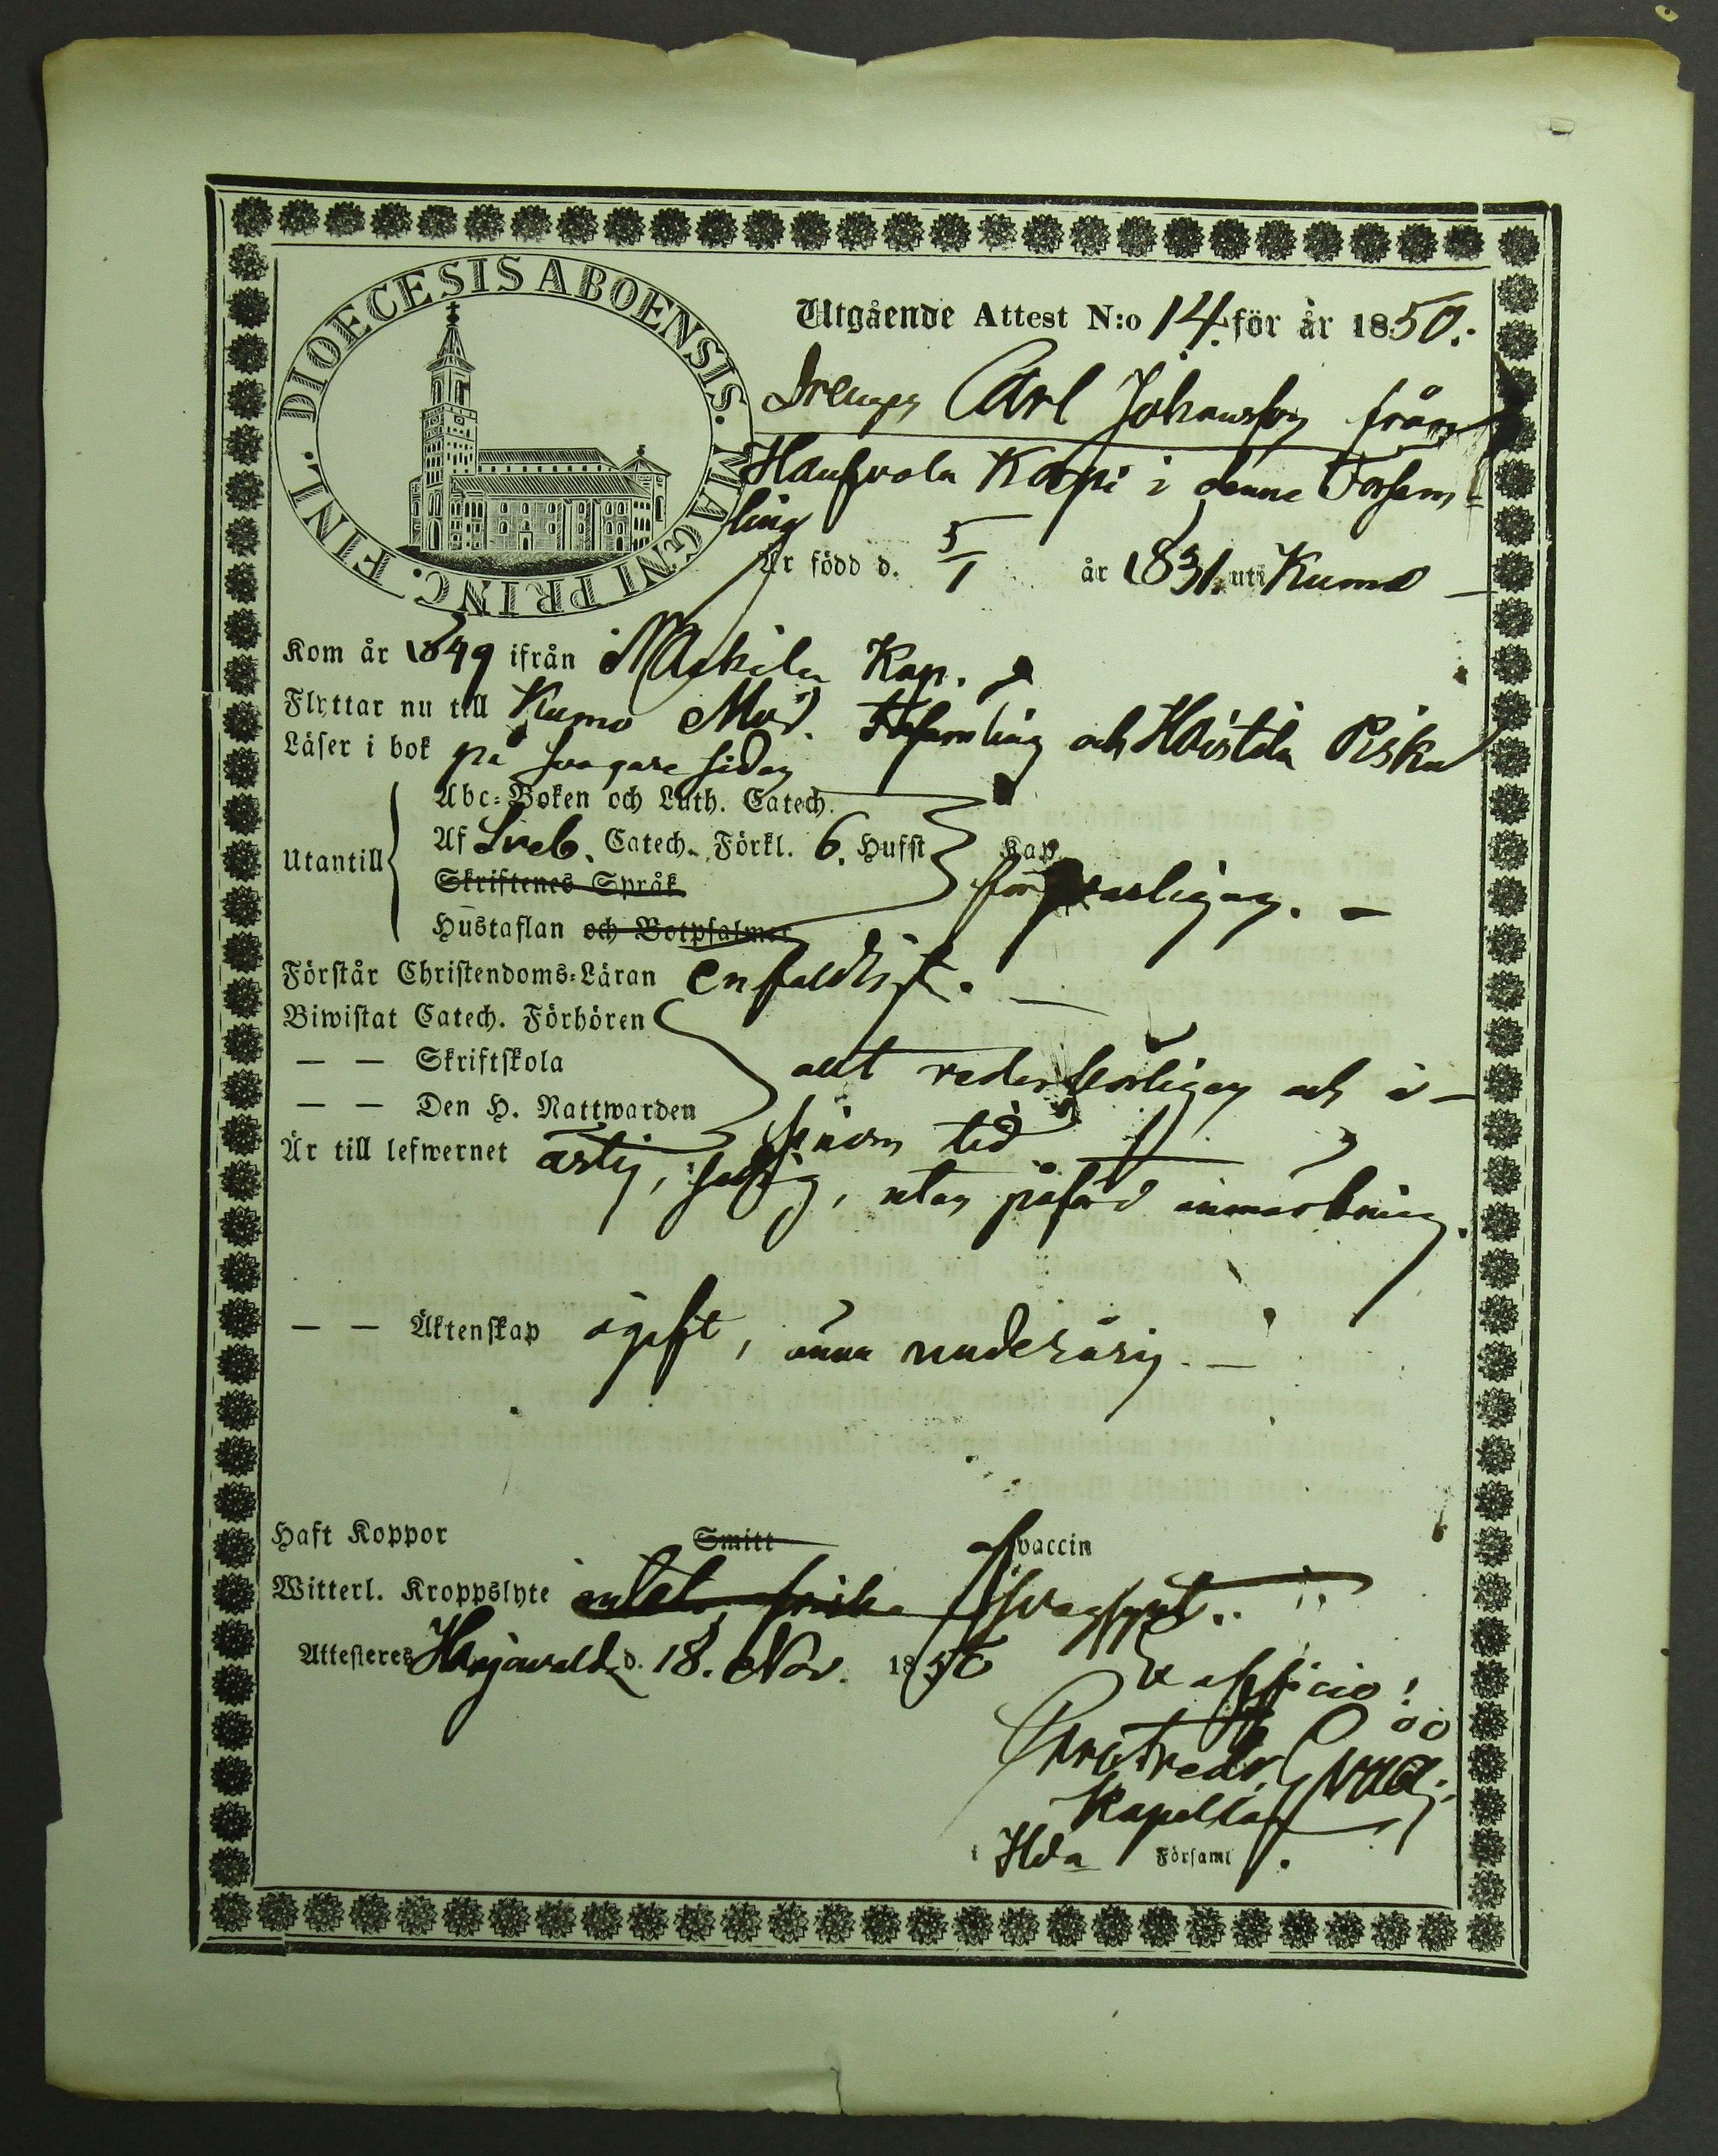 DIOECESIS ABOENSIS. MAGNI PRINC. FINL.
Utgående Attest N:o 14. för år 1850.
Drengen Carl Johansson från
Kaps i denne Forsam-
ling
Är född d. 5/1 år 1831. uti Kumo
Kom år 1849 ifrån Kap.
Flyttar nu till Kumo Mod. Församling och Pisku
Läser i bok på svagare sidan
Utantill
Abc-Boken och Luth. Catech.
Af Sveb. Catech. Förkl. 6. Hufst Kap.
Skriftenes Språk
försvarligen. -
Hustaflan och Botpsalmer
Förstår Christendoms-Läran enfaldigt. -
Biwistat Catech. Förhören
— — Skriftskola
allt vederbörligen och i -
— — Den H. Nattwarden
sinom tid
Är till lefwernet artig, sedig, utan påförd anmärkning.
— — Äktenskap ogift, ännu underårig. —
Haft Koppor Smitt vaccin
Witterl. Kroppslyte intet, friska
Attesteres Harjavald d. 18. Nov. 1850
Ex officio:
Kapellan
i Hda Församl.